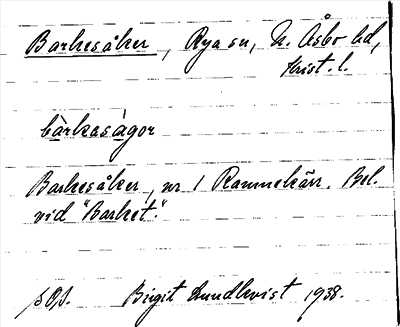 Barkesåker, Rya sn, N. Åsbo hd,
Krist. l.
bàrkasàgor
Barkesåker, nr 1 Rammekärr. Bel.
vid "Barket".
Birgit Lundkvist 1938.